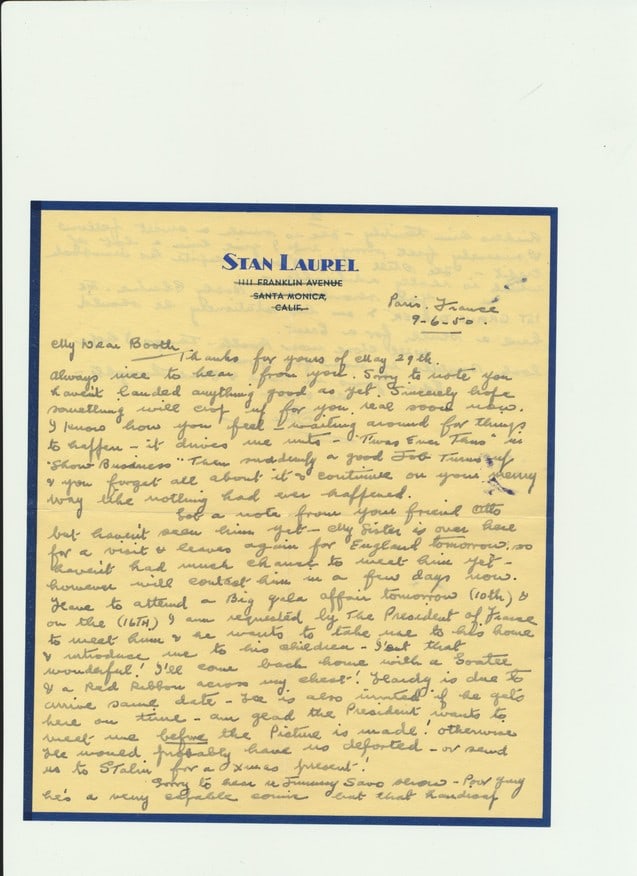 STAN LAUREL
1111 FRANKLIN AVENUE
SANTA MONICA,
CALIF.
Paris. France
9-6-50.
My Dear Booth.
Thanks for yours of May 29th.
Always nice to hear from you. Sorry to note you
haven't landed anything good as yet. Sincerely hope
something will crop up for you real soon now.
I know how you feel waiting around for things
to happen - it drives me nuts - "Twas Ever Thus" in
"Show Business" Then suddenly a good Job Turns up
& you forget all about it & continue on your merry
way like nothing had ever happened.
Got a note from your friend Otto
but haven't seen him yet - My Sister is over here
for a visit & leaves again for England tomorrow, so
haven't had much chance to meet him yet -
however will contact him in a few days now.
Have to attend a Big gala affair tomorrow (10th) &
on the (16TH) I am requested by The President of France
to meet him & he wants to take me to his home
& introduce me to his children - that
wonderful! I'll come back home with a Goatee
& a Red Ribbon across my chest! Hardy is due to
arrive same date - He is also invited if he gets
here on time - am glad the President wants to
meet me before the Picture is made! otherwise
He would probably have us deported - or send
us to Stalin for a Xmas present!
Sorry to hear re Jimmy Savo show - Poor guy
he's a very capable comic but that handicap